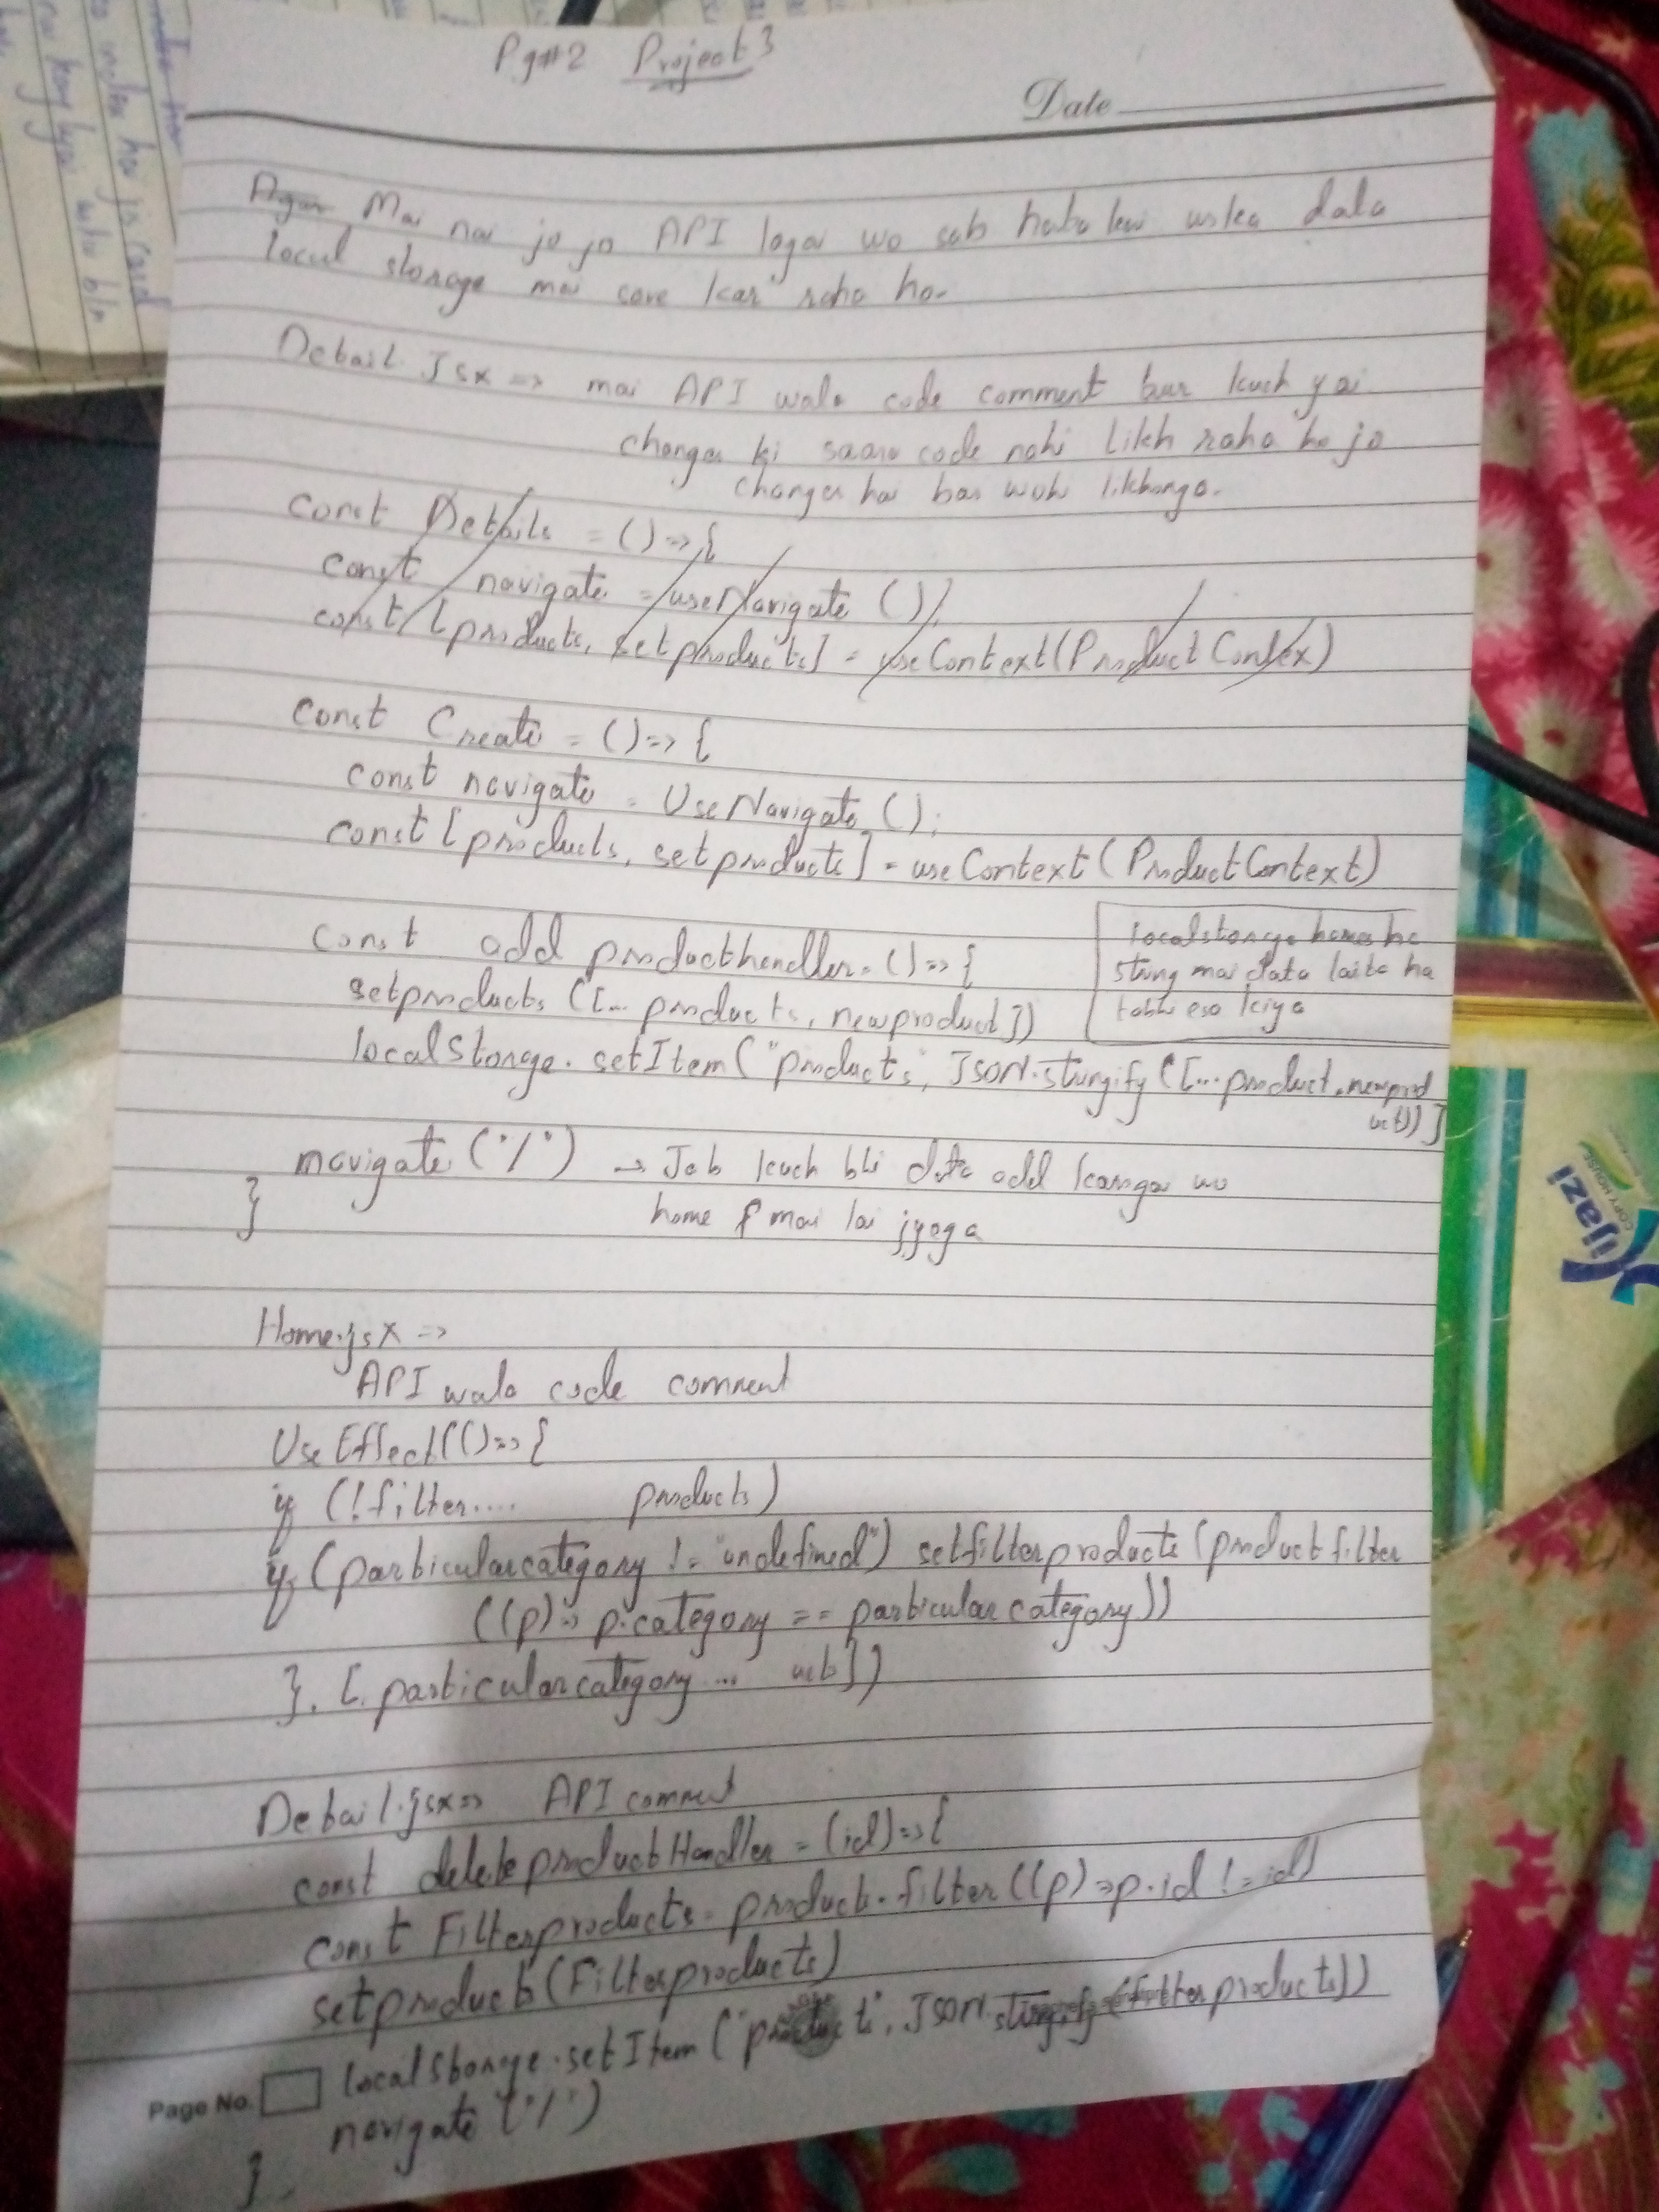 Pg#2 Project 3
Date
Agar Mai nai jo jo API lagai wo sab hata kar uska data
local storage mai save kar raha ho-
Detail.Jsx => mai API wala code comment bus kuch yai
changes ki saara code nahi likh raha ho jo
changes hai bas woh likhonga.
const Details = () => {
const navigate = useNavigate ();
const [products, setproducts] = useContext(ProductContex)
const Create = () => {
const navigate = UseNavigate ();
const [products, setproducts] = useContext (ProductContext)
const add producthandler = () => {
setproducts ([... products, newproduct])
localstorage hamesha
string mai data laita ha
tabhi esa kiya
localStorage.setItem("products", JSON.stringify([...product, newprod
uct))]
navigate ("/") → Jab kuch bhi data add karega wo
home p mai lai jyega
}
Home.jsx =>
API wala code comment
UseEffect(() => {
if (!filter.... products)
if (particularcategory != "undefined") setfilterproducts (product filter
((p) => p.category == particularcategory))
}, [.particularcategory ... uct])
Detail.jsx => API comment
const deleteproductHandler = (id) => {
const Filterproducts = products.filter((p) => p.id != id)
setproducts (Filterproducts)
localStorage.setItem ("products", JSON.stringify (filterproducts))
Page No.
navigate ("/")
}
Hijazi
COPY HOUSE